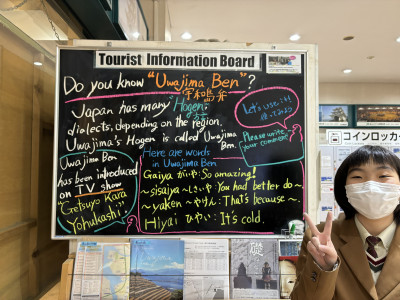 Tourist Information Board
Do you know "Uwajima Ben"?
宇和島弁
Japan has many "Hogen",
dialects, depending on the region.
Uwajima's Hogen is called Uwajima
Ben.
Let's use it!
使ってみよう
Please write
your comment
Uwajima Ben
has been introduced
on TV show
"Getsuyo Kara
Yohukashi"
Here are words
in Uwajima Ben
Gaiya がいや: So amazing!
~sisaiya ~しさいや: You had better do~.
~yaken ~やけん: That's because~.
Hiyai ひやい: It's cold.
コインロッカー